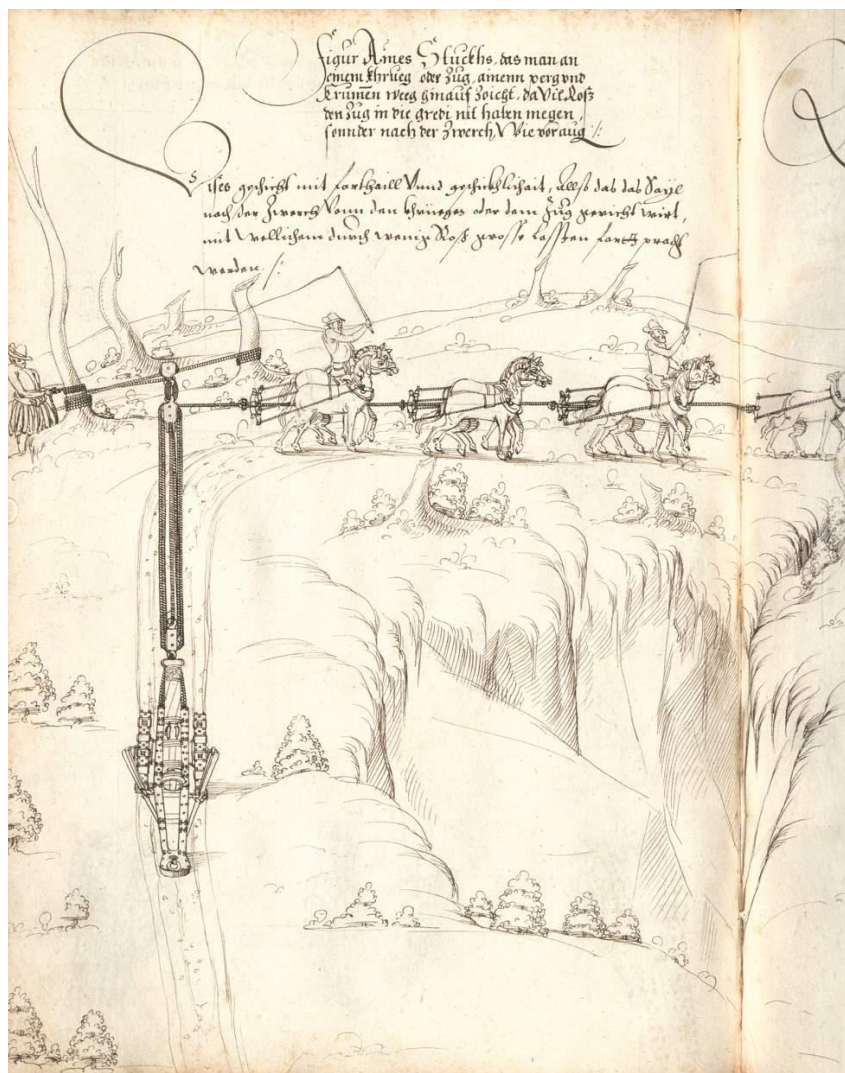 Figur Aines Stuckhs, das man an
einem Khrieg oder Zug, ainenn perg vnd
Krumen weeg hinauf Zeicht, da Vil Roß
den Zug in die gredi nit haben megen,
sonnder nach der Zwerch, Wie vor aug /:
Dises geschicht mit forthaill Vnnd geschickhlichait, Allso das das Sayl
nach der Zwerch Vonn den khrieges oder dem Zug gericht wirt,
mit Wellichem durch wenig Roß grosse Lassten fort pracht
werden /: